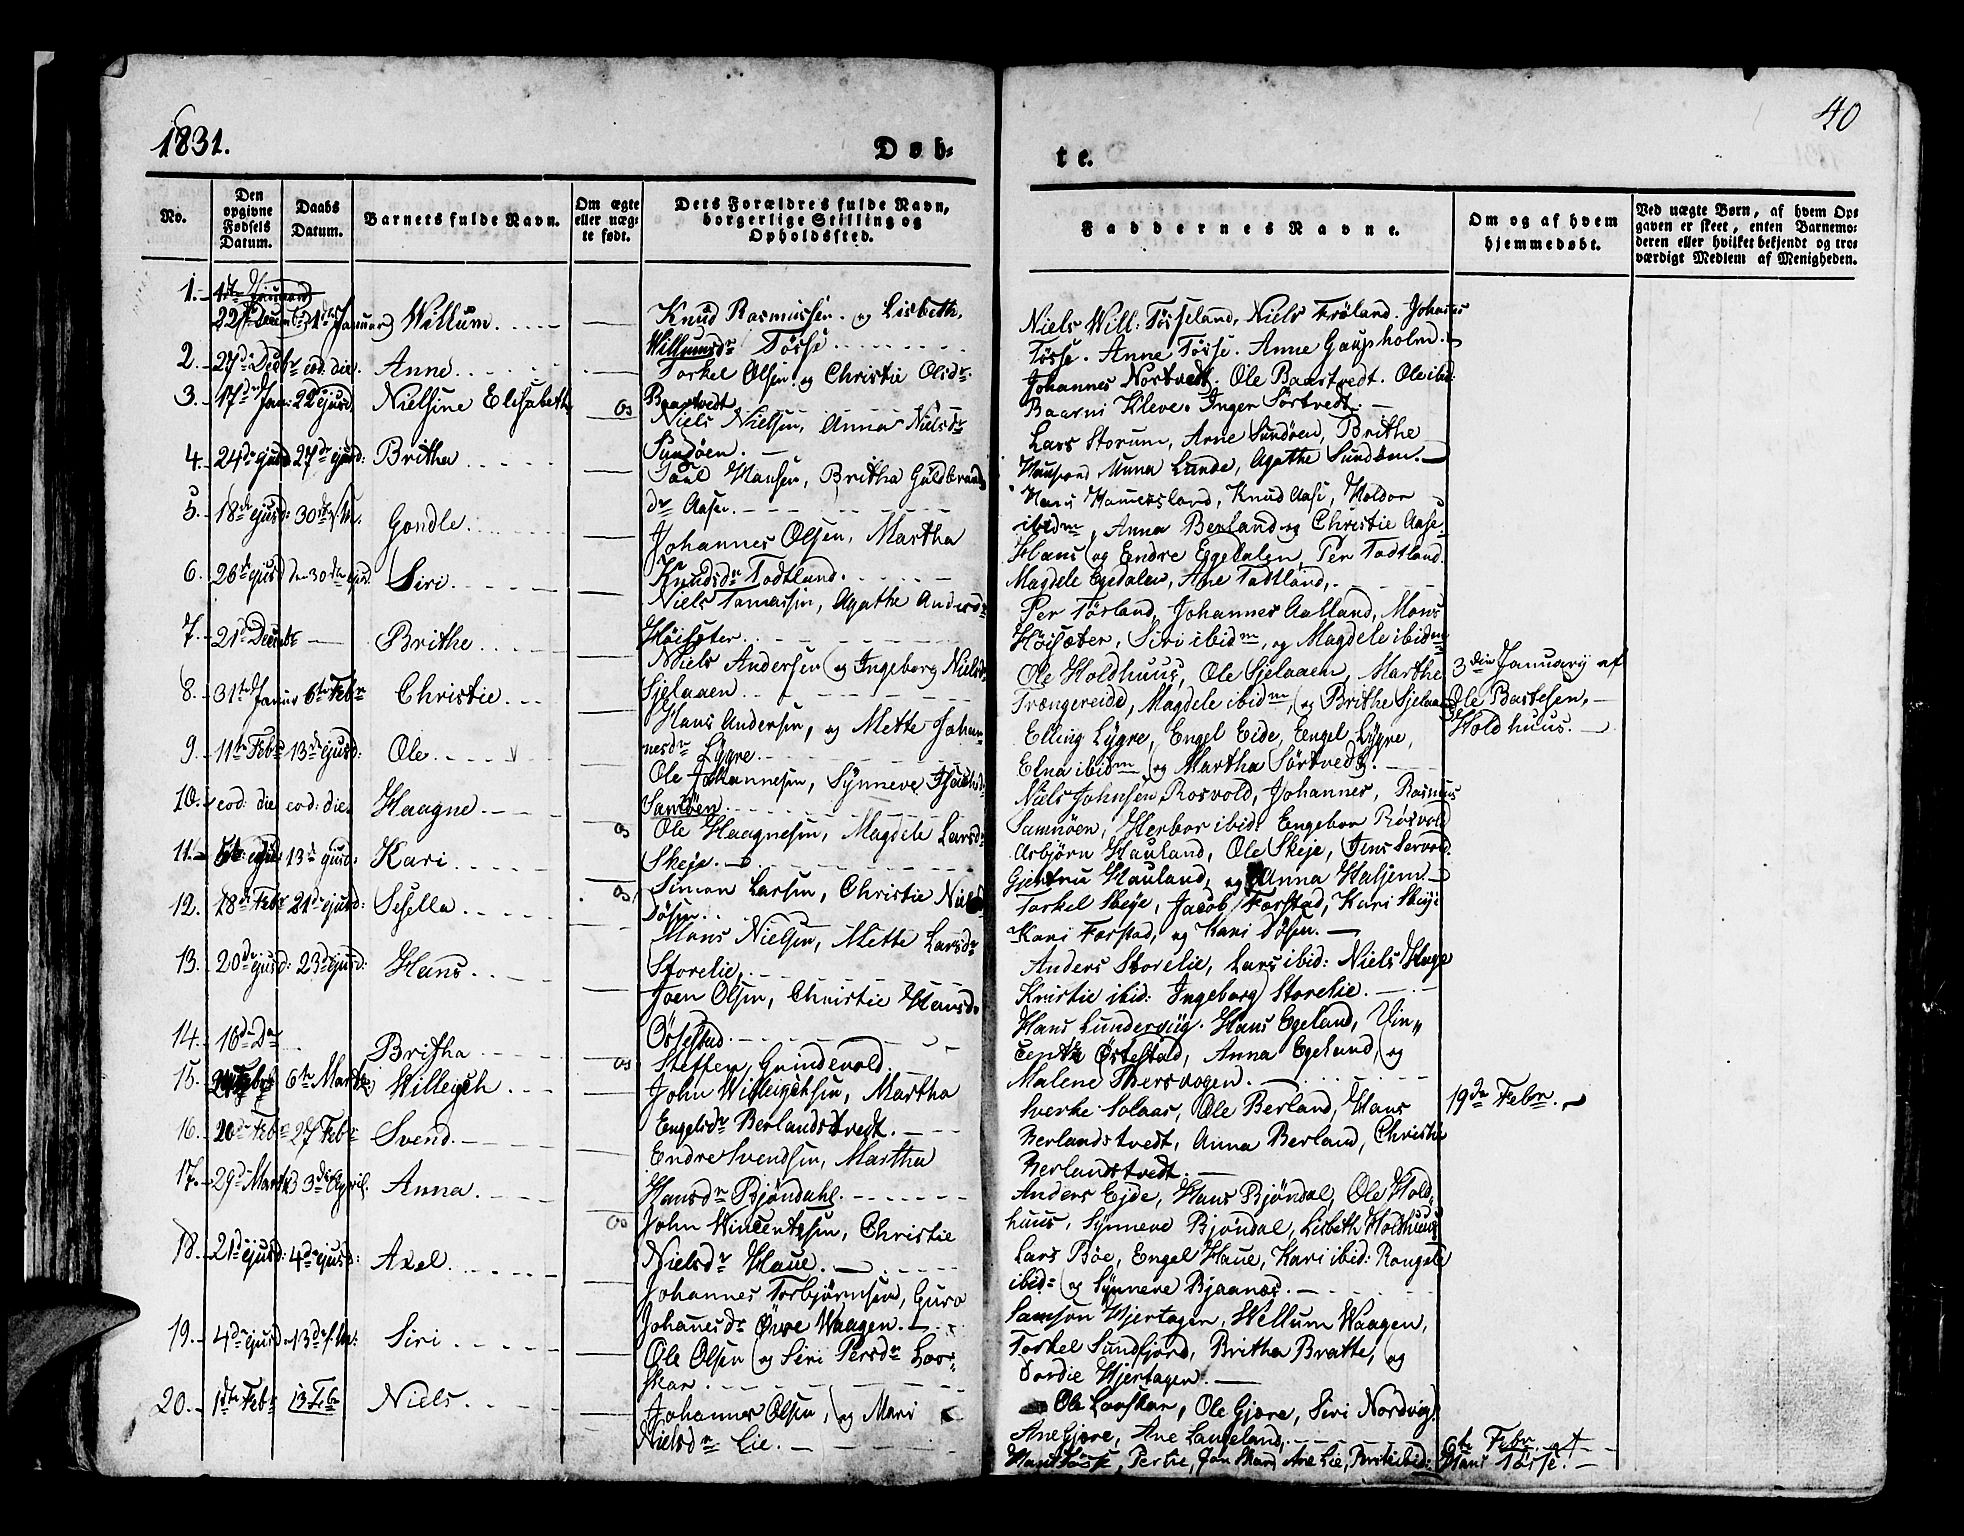 1831.
40
Døb-
te.
No.
Den opgivne Fødsels Datum.
Daabs Datum.
Barnets fulde Navn.
Om ægte eller uægte født.
Dets Forældres fulde Navn, borgerlige Stilling og Opholdssted.
Faddernes Navne.
Om og af hvem hjemmedøbt.
Ved uægte Børn, af hvem Opgaven er skeet, enten Barnemoderen eller hvilket bekjendt og troværdigt Medlem af Menigheden.
1. Willum.
Knud Rasmussen og Lisbeth
Willumsdr Tøsse
Niels Will: Tøsseland, Niels Frøland. Johannes
Tøsse. Anne Tøsse. Anne Gaupholm.
2. 27d Decbr eod: die. Anne
Torkel Olsen og Christie Olsdr.
Baastvedt
Johannes Nortvedt. Ole Baastvedt. Ole ibid:
Baarni Kleve. Inger Sørtvedt.
3. 17d Jan: 22 ejusd Nielsine Elisabeth
Niels Nielsen, Anna Nielsdr
Sundøen.
Lars Storum, Arne Sundøen, Brithe
Anna Lunde, Agathe Sundøen.
4. 24d ejusd 27d ejusd: Britha
Paul Hansen, Britha Guldbrands
dr Aase.
Hans Hamersland, Knud Aase, Holdor
ibidm, Anna Berland og Christie Aase
5. 18d ejusd: 30 Gondle.
Johannes Olsen, Martha
Knudsdr Todtland.
Hans og Endre Eggedalen, Per Todtland.
Magdele Egedalen, Ane Todtland.
6. 26d ejusd 30 Siri.
Niels Tomassen, Agathe Andersdr
Høisæter.
Per Tøsland, Johannes Aalland, Mons
Høisæter, Siri ibidm, og Magdele ibidm
7. 21d Decembr Brithe
Niels Andersen og Ingeborg Nielsd
Sjelaaen
Ole Holdhuus, Ole Sjelaaen, Marthe
Trængereide, Magdele ibidm, og Brithe Sjelaaen
3die January af
Ole Bastesen,
Holdhuus.
8. 31te Janur 6te Febr Christie
Hans Andersen, og Mette Johan-
nesdr Lygre.
Elling Lygre, Engel Eide, Engel Lygre,
Elna ibidm og Martha Sørtvedt.
9. 11te Febr 13d ejusd: Ole
Ole Johannesen, Synneve
Samnøen
Niels Johnsen Rosvold, Johannes, Rasmus
Samnøen, Herbor ibid: Engebor Røsvold
10. eod: die eod: die. Haagne
Ole Haagnesen, Magdele Larsdr
Skeje.
Asbjørn Hauland, Ole Skeje, Jens
Gjertru Hauland, og Anna Haljem
11. 13d ejusd: Kari
Simon Larsen, Christie
Døsen.
Torkel Skeje, Jacob Forstad, Kari Skeje
Kari Forstad, og Kari Døsen.
12. 18d Febr 21d ejusd: Sesella
Mons Nielsen, Mette Larsdr
Storelie,
Anders Storelie, Lars ibid: Niels Hage
Kristie ibid: Ingeborg Storelie.
13. 20d ejusd: 23d ejusd: Hans.
Joen Olsen, Christie Hansd.
Østestad.
Hans Hans Egeland, Vin„
centz Østestad, Anna Egeland, og
Malene
14. 16d Do Britha
Steffen Grindevold
15. 6te Marts Willeich
John Willeichsen, Martha
Engelsdr Berlandstvedt.
Sverke Solaas, Ole Berland, Hans
Berlandstvedt, Anna Berland, Christie
Berlandstvedt.
19de Febr.
16. 20 Febr 27 Febr Svend.
Endre Svendsen, Martha
Hansdr Bjöndahl.
Anders Ejde, Hans Bjöndal, Ole Hold-
huus, Synneve Bjöndal, Lisbeth Holdhuus
17. 29d Marts 3die April. Anna
John Wincentzsen, Christie
Nielsdr Haue.
Lars Bøe, Engel Haue, Kari ibid: Rangele
ibid: og Synneve Bjaanæs.
18. 21d ejusd: 4d ejusd: Axel
Johannes Torbjørnsen, Guro
Johanesdr Øvre Waagen.
Samson Hjertager, Wellum Waagen,
Torkel Sundfjord, Britha Bratte, og
Dordie Hjertager.
19. 4d ejusd 13d Siri
Ole Olsen og Siri Persdr Loos-
kar
Ole Looskar, Ole Gjære, Siri Nordvig
Ane Gjære, Ane Langeland,
20. 1ste Febr 13 Febr Niels
Johannes Olsen, og Mari
Nielsdr Lie.
Hans Tøsse, Per Lie, Ane Lie, ibid:
6te Febr. af
Hans Tøsse.